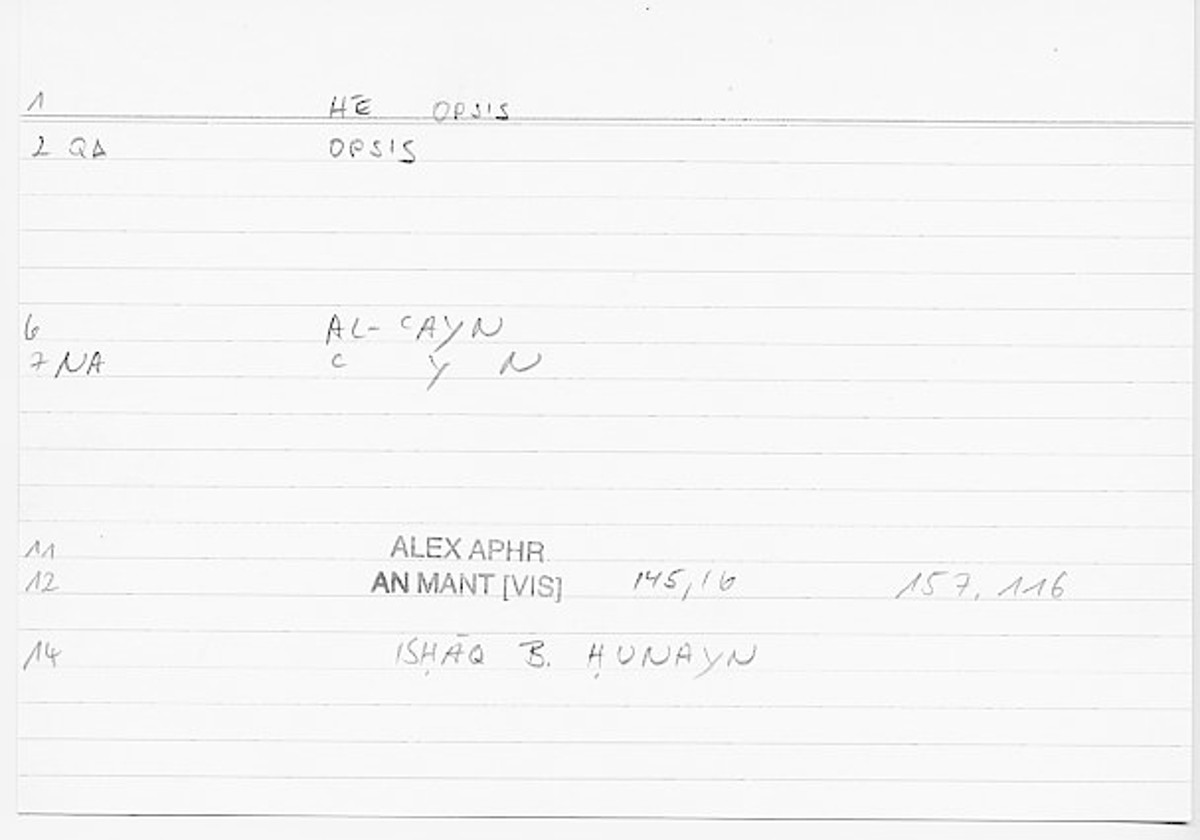 1 HĒ OPSIS
2 QA OPSIS
6 AL-ʿAYN
7 NA ʿ Y N
11 ALEX APHR.
12 AN MANT [VIS] 145,16 157, 116
14 ISḤĀQ B. ḤUNAYN